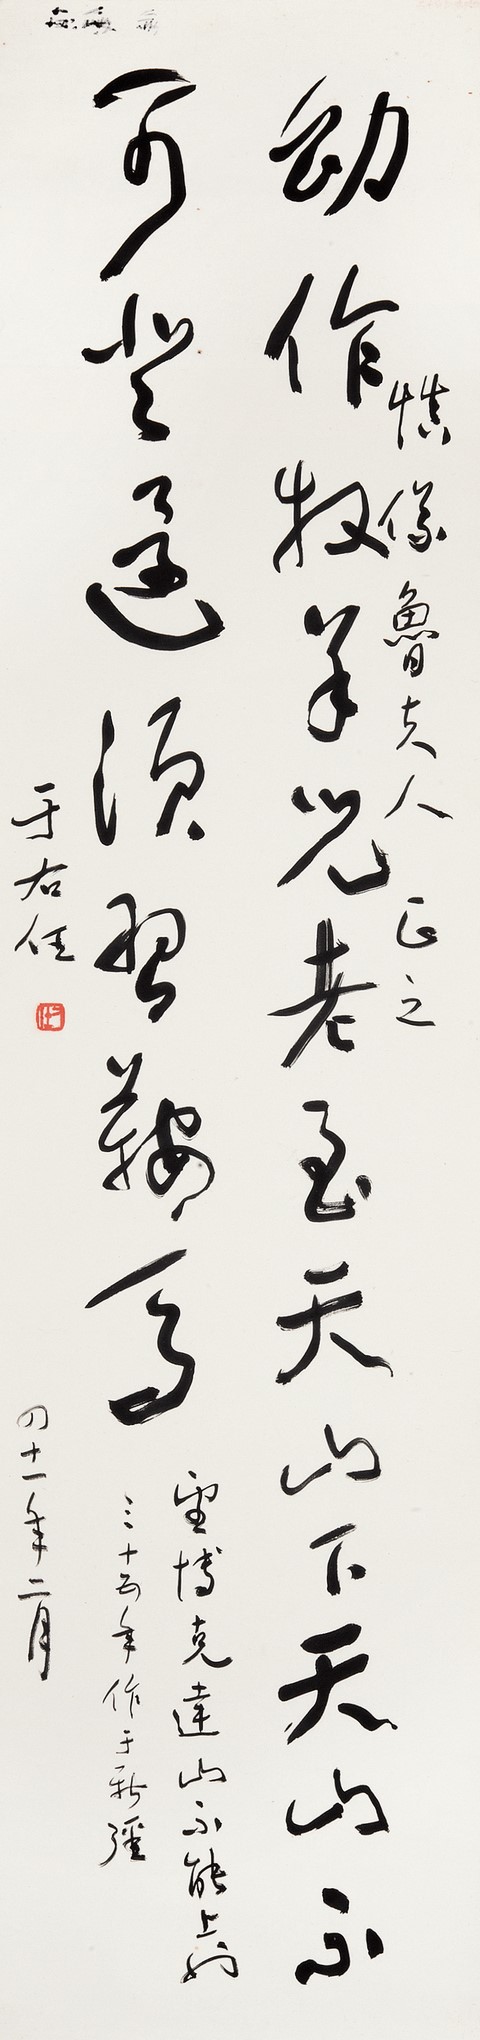 慎儀魯夫人 正之
幼作牧羊兒老至天山下天山不
可登還須習鞍馬
望博克達山不能上
三十五年作于新疆
于右任
四十一年二月